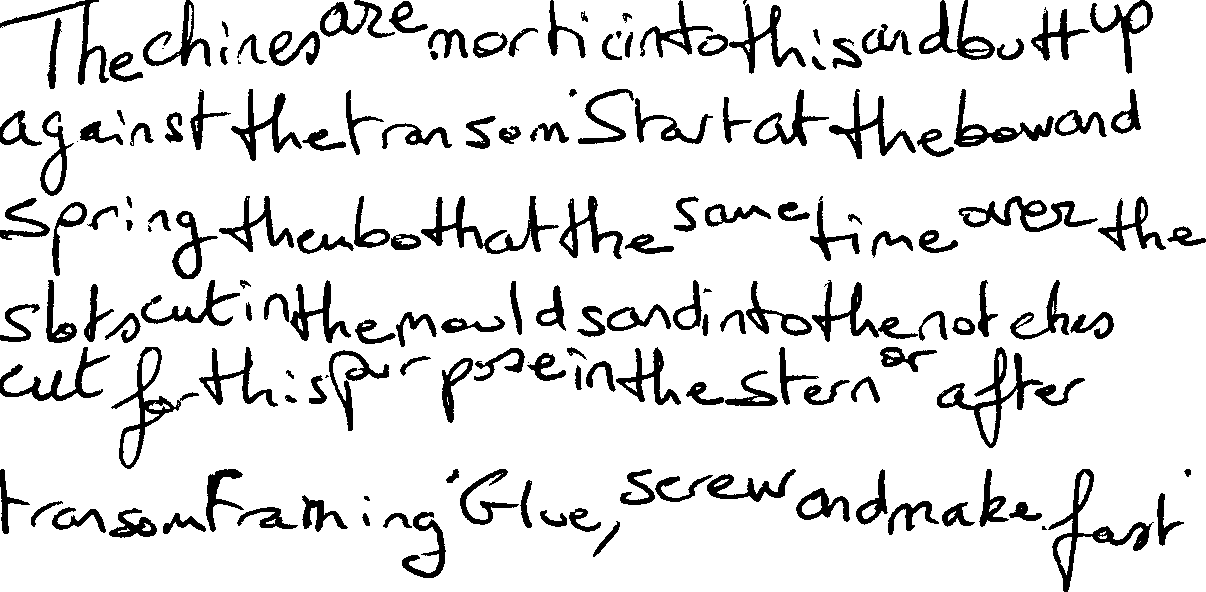 The chines are mortic into this and butt up
against the transom. Start at the bow and
spring them both at the same time over the
slots cut in the moulds and into the notches
cut for this purpose in the stern or after
transom framing. Glue, screw and make fast.